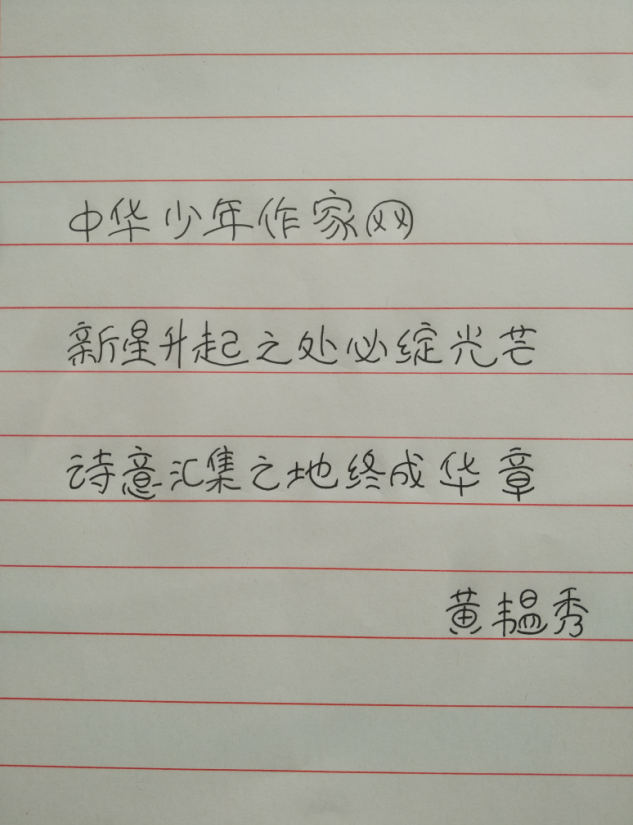 中华少年作家网
新星升起之处必绽光芒
诗意汇集之地终成华章
黄韫秀